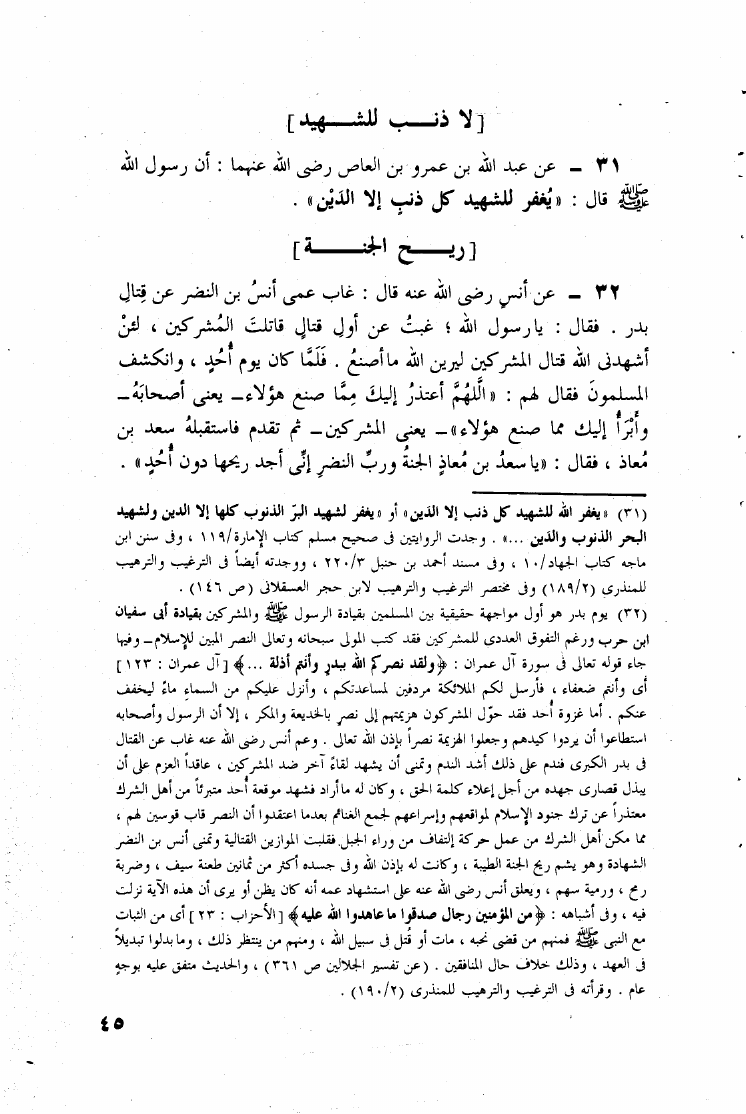 [لا ذنـــب للشـــهيد]
٣١ ـ عن عبد الله بن عمرو بن العاص رضى الله عنهما : أن رسول الله
ﷺ قال : «يُغفر للشهيد كل ذنبٍ إلا الدَيْن» .
[ريـــح الجنـــة]
٣٢ ـ عن أنسٍ رضى الله عنه قال : غاب عمى أنسُ بن النضر عن قِتالِ
بدر . فقال : يارسول الله ؛ غبتُ عن أولِ قتالٍ قاتلتَ المُشركين ، لئنْ
أشهدنى الله قتال المشركين ليرين الله ماأصنعُ . فَلَمَّا كان يوم أُحُدٍ ، وانكشف
المسلمونَ فقال لهم : «الَّلهُمَّ أعتذرُ إليكَ مِمَّا صنع هؤلاء ـ يعنى أصحابَهُ ـ
وأَبْرَأُ إليك مما صنع هؤلاء» ـ يعنى المشركين ـ ثم تقدم فاستقبلهُ سعد بن
مُعاذ ، فقال : «ياسعدُ بن مُعاذٍ الجنةُ وربِّ النضرِ إنِّى أجد ريحها دون أُحُدٍ» .
(٣١) «يغفر الله للشهيد كل ذنب إلا الدين» أو «يغفر لشهيد البرّ الذنوب كلها إلا الدين ولشهيد
البحر الذنوب والدَين ...» . وجدت الروايتين فى صحيح مسلم كتاب الإمارة/١١٩ ، وفى سنن ابن
ماجه كتاب الجهاد/١٠ ، وفى مسند أحمد بن حنبل ٢٢٠/٣ ، ووجدته أيضاً فى الترغيب والترهيب
للمنذرى (١٨٩/٢) وفى مختصر الترغيب والترهيب لابن حجر العسقلانى (ص ١٤٦) .
(٣٢) يوم بدر هو أول مواجهة حقيقية بين المسلمين بقيادة الرسول ﷺ والمشركين بقيادة أبى سفيان
ابن حرب ورغم التفوق العددى للمشركين فقد كتب المولى سبحانه وتعالى النصر المبين للإسلام ـ وفيها
جاء قوله تعالى فى سورة آل عمران : ﴿ولقد نصركم الله ببدرٍ وأنتم أذلة ...﴾ [آل عمران : ١٢٣]
أى وأنتم ضعفاء ، فأرسل لكم الملائكة مردفين لمساعدتكم ، وأنزل عليكم من السماءِ ماءً ليخفف
عنكم . أما غزوة أُحد فقد حوّل المشركون هزيمتهم إلى نصرٍ بالخديعة والمكر ، إلا أن الرسول وأصحابه
استطاعوا أن يردوا كيدهم وجعلوا الهزيمة نصراً بإذن الله تعالى . وعم أنس رضى الله عنه غاب عن القتال
فى بدر الكبرى فندم على ذلك أشد الندم وتمنى أن يشهد لقاءً آخر ضد المشركين ، عاقداً العزم على أن
يبذل قصارى جهده من أجل إعلاء كلمة الحق ، وكان له ماأراد فشهد موقعة أُحد متبرئاً من أهل الشرك
معتذراً عن ترك جنود الإسلام لمواقعهم وإسراعهم لجمع الغنائم بعدما اعتقدوا أن النصر قاب قوسين لهم ،
مما مكن أهل الشرك من عمل حركة إلتفاف من وراء الجبل فقلبت الموازين القتالية وتمنى أنس بن النضر
الشهادة وهو يشم ريح الجنة الطيبة ، وكانت له بإذن الله وفى جسده أكثر من ثمانين طعنة سيف ، وضربة
رمح ، ورمية سهم ، ويعلق أنس رضى الله عنه على استشهاد عمه أنه كان يظن أو يرى أن هذه الآية نزلت
فيه ، وفى أشباهه : ﴿من المؤمنين رجال صدقوا ماعاهدوا الله عليه﴾ [الأحزاب : ٢٣] أى من الثبات
مع النبى ﷺ فمنهم من قضى نحبه ، مات أو قُتل فى سبيل الله ، ومنهم من ينتظر ذلك ، ومابدلوا تبديلاً
فى العهد ، وذلك خلاف حال المنافقين . (عن تفسير الجلالين ص ٣٦١) ، والحديث متفق عليه بوجهٍ
عام . وقرأته فى الترغيب والترهيب للمنذرى (١٩٠/٢) .
٤٥